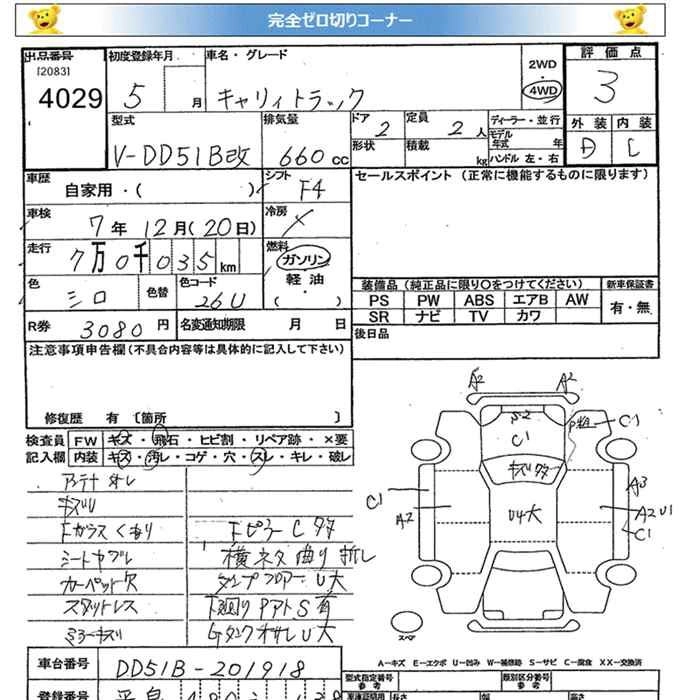 完全ゼロ切りコーナー
出品番号 初度登録年月 車名・グレード 2WD・4WD 評価点
[2083]
4029 5 月 キャリィトラック 3
型式 排気量 ドア 2 定員 2 人 ディーラー・並行 外装 内装
V-DD51B改 660 cc 形状 積載 kg モデル年式 年 D C
ハンドル 左・右
車歴 自家用・( ) シフト F4 セールスポイント (正常に機能するものに限ります)
車検 7 年 12 月 (20 日) 冷房
走行 7万0千035 km 燃料 ガソリン
軽油
( )
色 シロ 色替 色コード 26U
装備品 (純正品に限り○をつけてください) 新車保証書
PS PW ABS エアB AW 有・無
SR ナビ TV カワ
R券 3080 円 名変通知期限 月 日
後日品
注意事項申告欄(不具合内容等は具体的に記入して下さい)
修復歴 有 [箇所 ]
検査員 FW キズ・飛石・ヒビ割・リペア跡・×要
記入欄 内装 キズ・汚レ・コゲ・穴・スレ・キレ・破レ
アンテナ オレ
キズU
Fガラス くもり FピラーC タタ
シートヤブレ 横ネタ曲り折レ
カーペット欠 ダンプフロアーU大
スタットレス 下廻り アトS有
ミラーキズ GタンクオサレU大
A2 A2
S2
C1
C1
キズ タタ
A3
C1
A2
U4大
A2 U1
C1
スペア
A-キズ E-エクボ U-凹み W-補修跡 S-サビ C-腐食 XX-交換済
車台番号 DD51B-201918
型式指定番号 類別区分番号
参考 参考
登録番号 長さ 幅 高さ